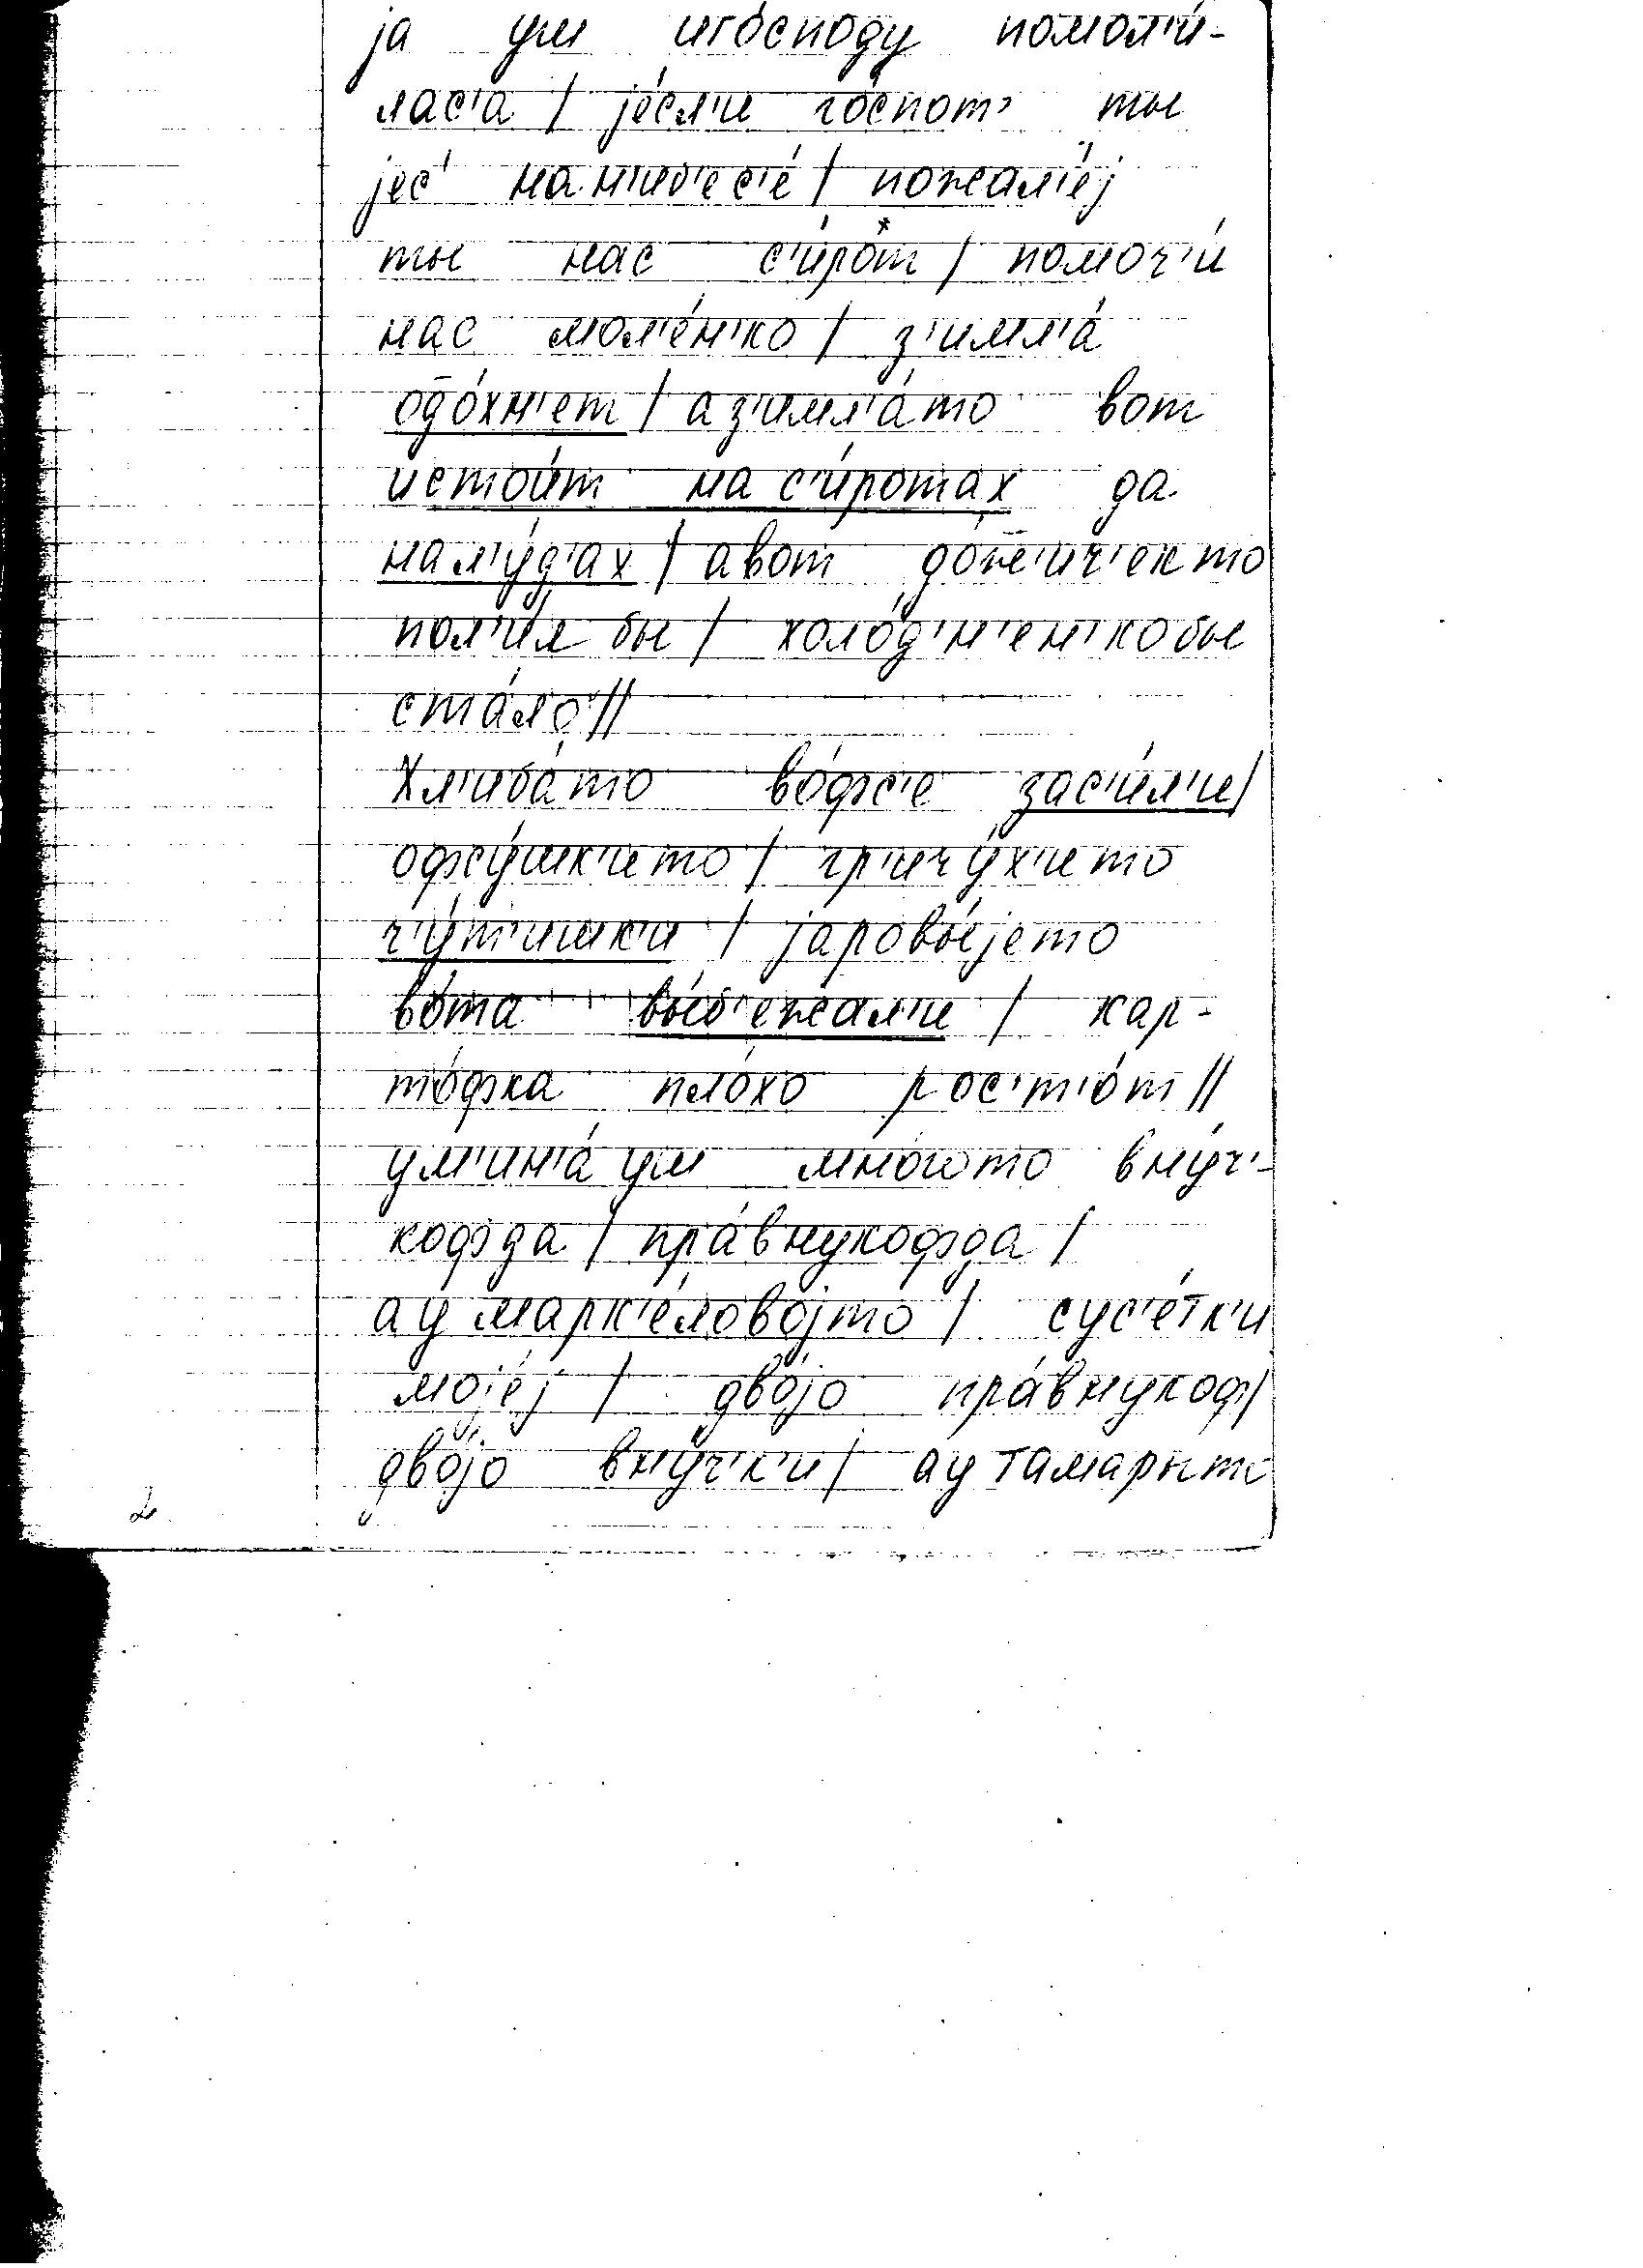 ја уш иго́споду помол'и́-
лас'а / је́сл'и го́спот' ты
јес' на.н'иб'ес'е́ / пожал'е́ј
ты нас с'и́ро́т / помоч'и́
нас мол'е́н'ко / з'имл'а́
одо́хн'ет / аз'имл'а́то вот
истои́т на с'и́ротах да
нал'у́д'ах / авот до́ж'ич'екто
пол'и́л бы / холо́д'н'ен'кобы
ста́ло //
Хл'иба́то во́фс'е зас'и́л'и /
офсу́шк'ито / гр'ичу́х'ито
ч'у́т'ишки / јаровы́јето
во́та вы́б'ежал'и / кар-
то́фка пло́хо рос'т'о́т //
ум'ин'а́ уш мно́што вну́ч'-
кофда / пра́внукофда /
ау марк'е́ловојто / сус'е́тк'и
моје́ј / дво́јо пра́внукоф /
дво́јо вну́ч'к'и / ау Тамарыто
2